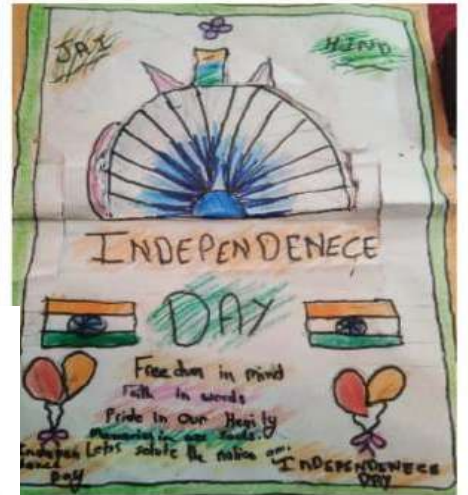 JAI HIND
INDEPENDENECE
DAY
Freedom in mind
Faith in words
Pride in Our
Memories in our Souls.
Lets salute the nation on
Indepen
INDESPENDENECE
DAY